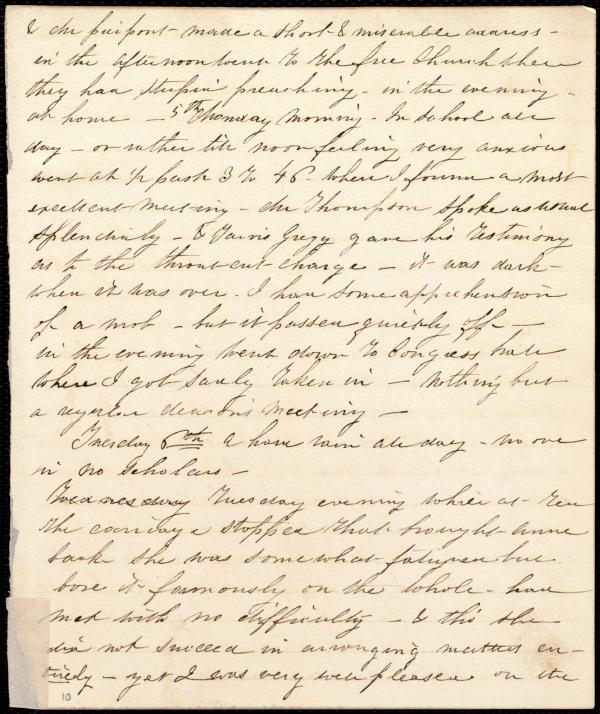 & Mr Pierpont - made a short & miserable address -
in the afternoon went to the free Church there
they had stupid preaching - in the evening -
at home - 5th Monday morning - In school all
day - or rather till noon feeling very anxious
went at ½ past 3 to 46 - where I found a most
excellent meeting - Mr Thompson spoke as usual
splendidly - & Jarvis Gregg gave his testimony
as to the throat cut charge - it was dark
when it was over. I had some apprehension
of a mob - but it passed quietly off -
in the evening went down to Congress hall
where I got sadly taken in - nothing but
a regular deacons meeting -
Tuesday 6th a hard rain all day - no one
in no scholars -
Wednesday Tuesday evening while at tea
the carriage stopped that brought Anne
back she was somewhat fatigued but
bore it famously on the whole - had
met with no difficulty - & tho she
did not succeed in arranging matters en-
tirely - yet I was very well pleased on the
10